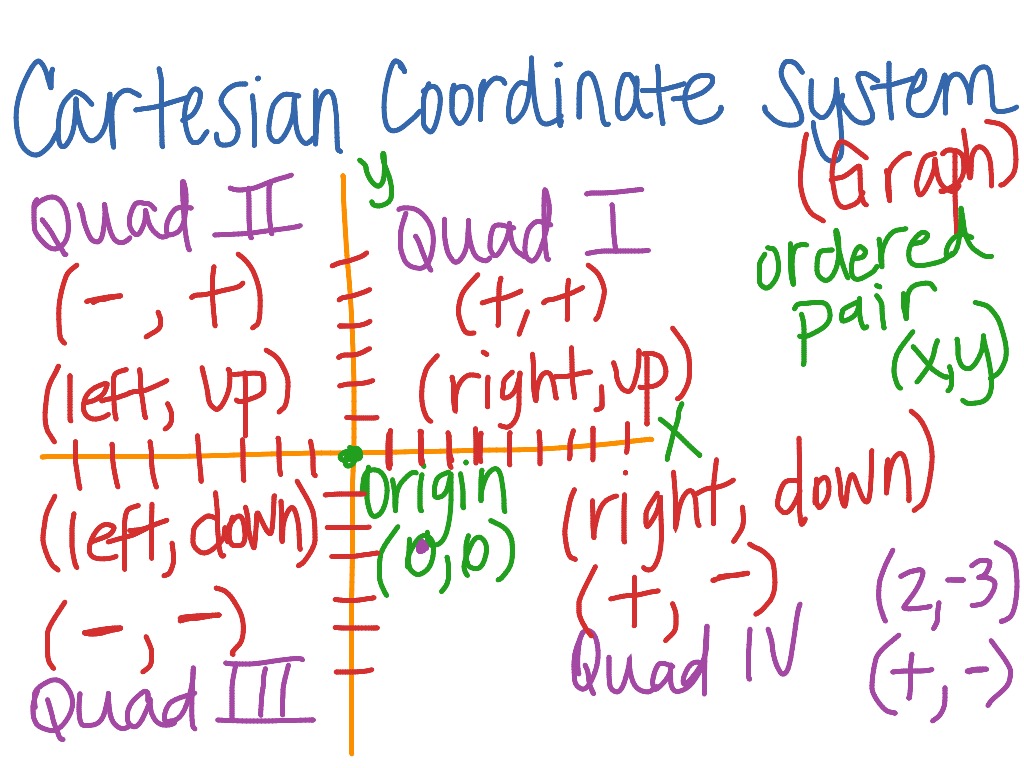 Cartesian Coordinate System
(Graph)
y
Quad II
(-, +)
(left, up)
Quad I
(+, +)
(right, up)
ordered
pair
(x,y)
x
origin
(0,0)
(left, down)
(-, -)
Quad III
(right, down)
(+, -)
Quad IV
(2,-3)
(+, -)